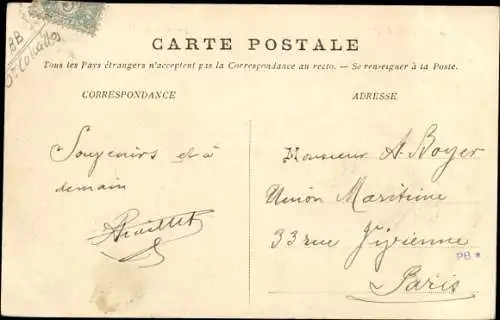 CARTE POSTALE
Tous les Pays étrangers n'acceptent pas la Correspondance au recto. — Se renseigner à la Poste.
CORRESPONDANCE
ADRESSE
Souvenirs et à
demain
Monsieur A. Boyer
Union Maritime
33 rue
Paris
PB *
BB